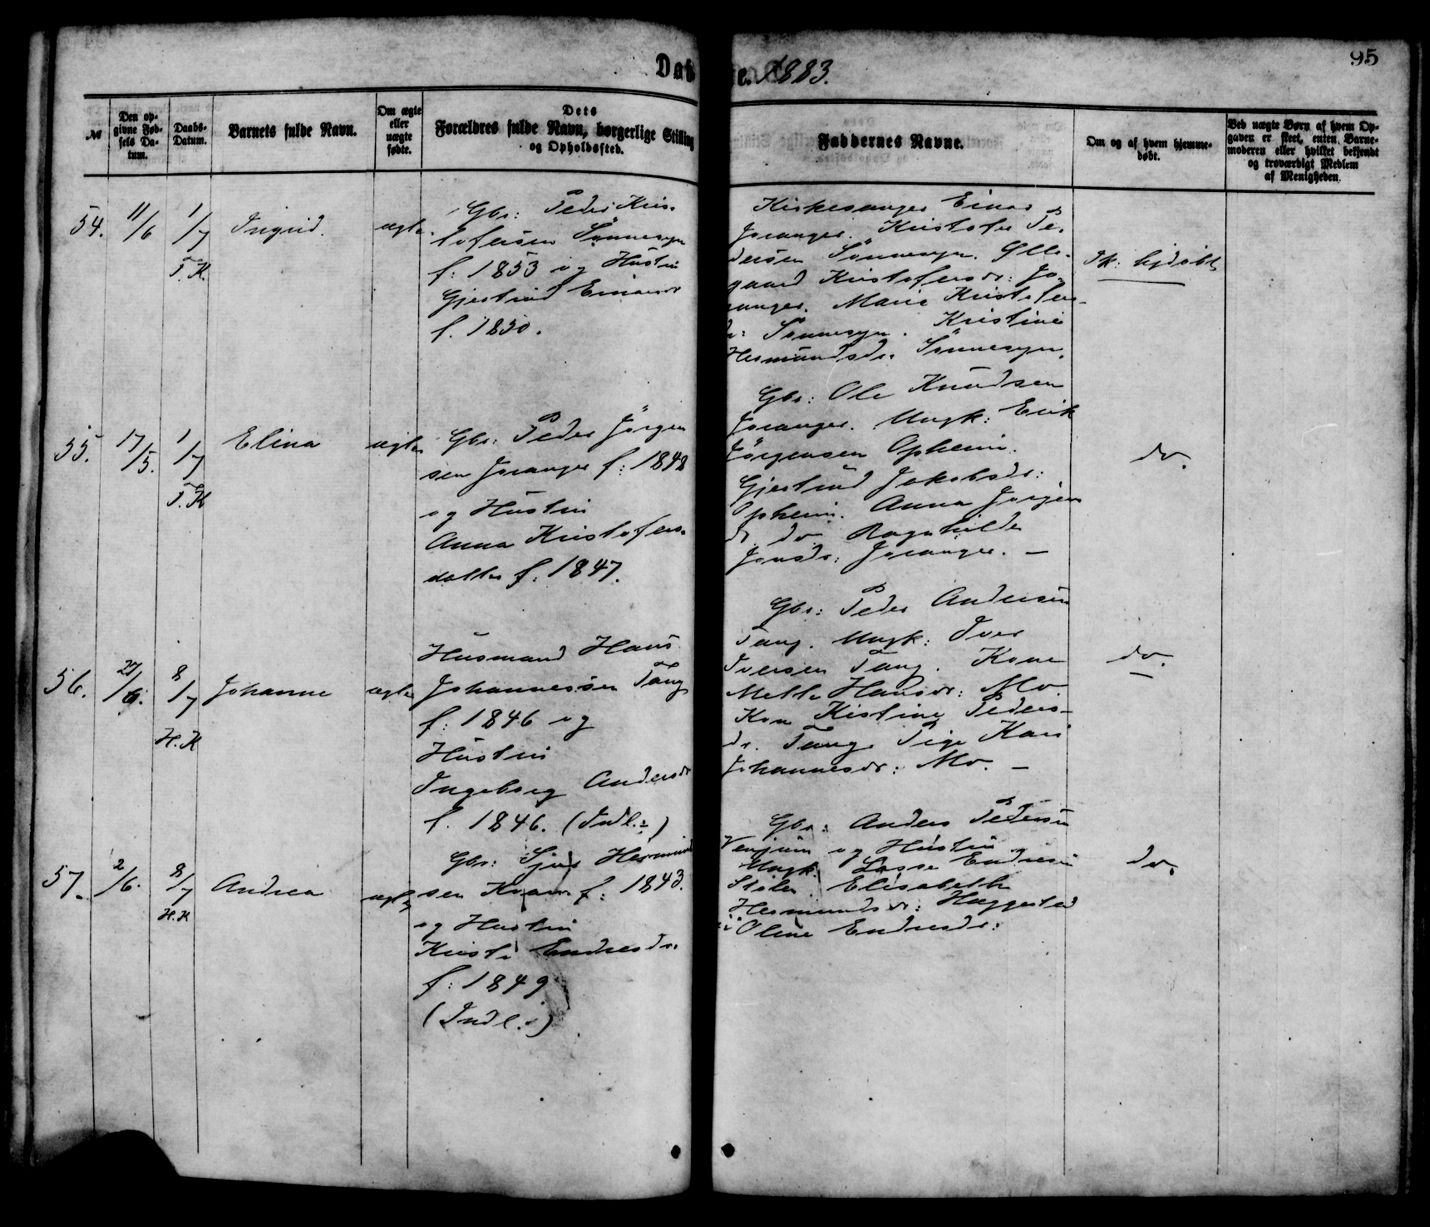 1883.
95
№
Den op-
givne Fød-
sels Da-
tum.
Daabs-
Datum.
Barnets fulde Navn.
Om ægte
eller
uægte
født.
Dets
Forældres fulde Navn, borgerlige Stilling
og Opholdssted.
Faddernes Navne.
Om og af hvem hjemme-
døbt.
Ved uægte Børn af hvem Op-
gaven er skeet, enten Barne-
moderen eller hvilket bekjendt
og troværdigt Medlem
af Menigheden.
54.
11/6
1/7
F. K
Ingrid.
ægte
Gbr: Peder Kris-
tofersen Sønnesyn
f: 1853 og Hustru
Gjertrud Einarsdr
f. 1850.
Kirkesanger Einar
Joranger. Kristofer Pe-
dersen Sønnesyn.
Kristofersdr: Jo-
ranger. Marie Kristofers-
dr: Sønnesyn. Kristine
Hermundsdr. Sønnesyn.
Ik: hjdøbt
55.
17/5.
1/7
F. K
Elina
ægte
Gbr: Peder Jörgen
sen Joranger f: 1848
og Hustru
Anna Kristofers-
datter f: 1847.
Gbr: Ole Knudsen
Joranger. Ungk: Erik
Jörgensen Opheim.
Gjertrud Jakobsdr:
Opheim. Anna Jörgens
dr do Ragnhilde
Jensdr: Joranger. —
do.
56.
27/6.
8/7
H. K
Johanne
ægte
Husmand Hans
Johannessen Tang
f: 1846 og
Hustru
Ingeborg Andersdr
f. 1846. (Indl:)
Gbr: Peder Andersen
Tang. Ungk: Iver
Iversen Tang. Kone
Mette Hansdr: Mo.
Kon Kistine Peders-
dr. Tang. Pige Kari
Johannesdr: Mo. —
do.
57.
2/6.
8/7
H.K
Andrea
ægte
Gbr: Sjur Hermund
sen Kvam f: 1843.
og Hustru
Kirsti Endresdr.
f: 1849
(Indl.:)
Gbr: Anders Pedersen
Venjum og Hustru
Ungk. Lasse Endresen
Elisabeth
Hermundsdr: Haggestad
Oline Endresdr:
do.